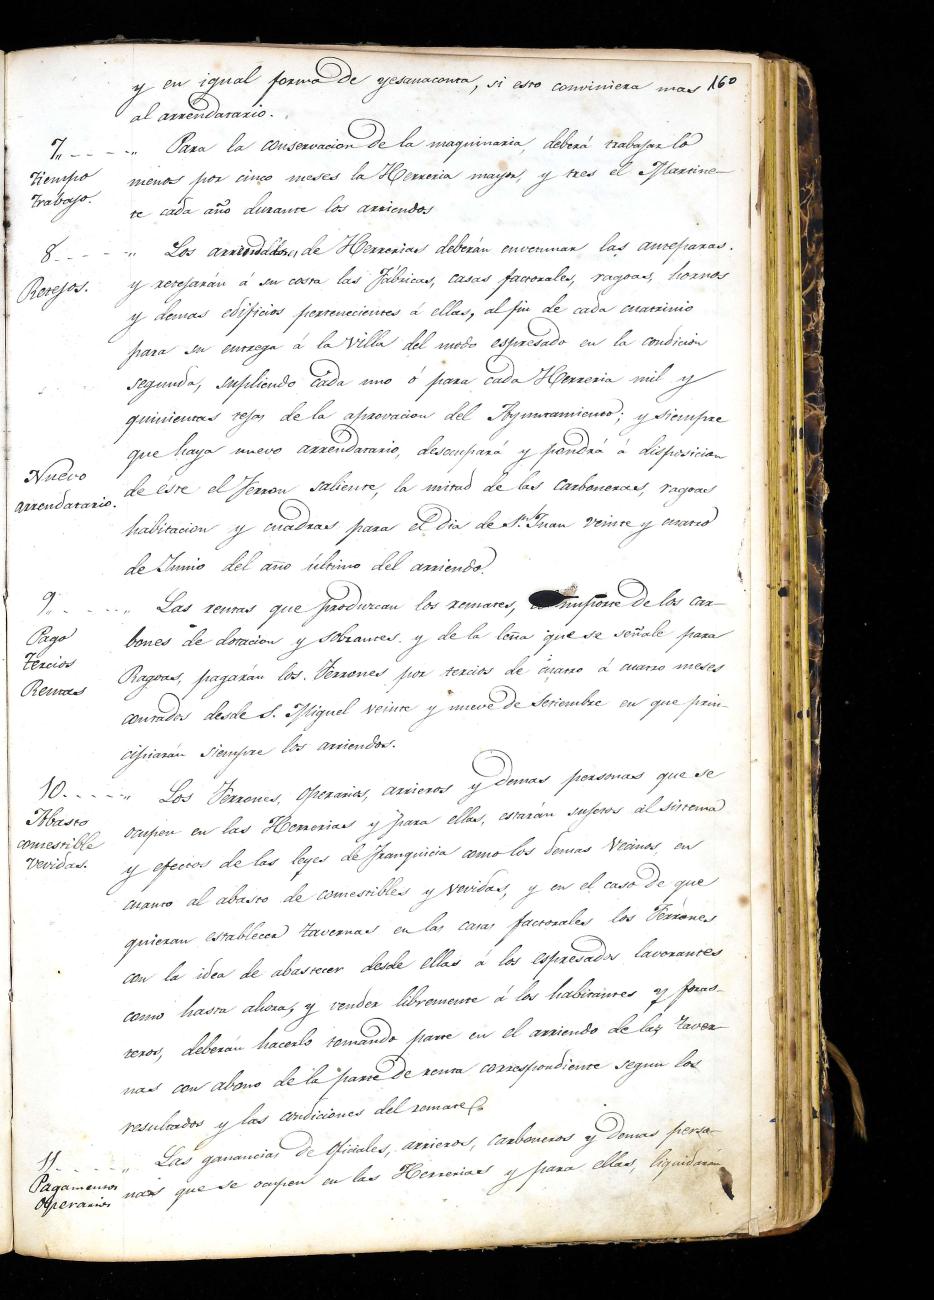 160
y en igual forma de yesanaconta, si esto conviniera mas
al arrendatario.
7,, - - - - ,, Para la conservacion de la maquinaria, deberá trabajar lo
Tiempo trabajo.
menos por cinco meses la Herreria mayor, y tres el Martine-
te cada año durante los arriendos
8 - - - - ,, Los arrendadores de Herrerias deberán envenenar las anteparas.
Retejos.
y retejarán á su costa las Fábricas, casas factorales, ragoas, hornos
y demas edificios pertenecientes á ellas, al fin de cada cuatrinio
para su entrega á la Villa del modo espresado en la condicion
segunda, supliendo cada uno ó para cada Herreria mil y
quinientas tejas de la aprovacion del Ayuntamiento; y siempre
que haya nuevo arrendatario, desocupará y pondrá á disposicion
Nuevo arrendatario.
de este el Ferron saliente, la mitad de las carboneras, ragoas
habitacion y cuadras para el dia de Sn. Juan veinte y cuatro
de Junio del año último del arriendo.
9,, - - - - ,, Las rentas que produzcan los remates, importe de los car-
Pago tercios Rentas
bones de dotacion y sobrantes. y de la leña que se señale para
Ragoas, pagarán los Ferrones por tercios de cuatro á cuatro meses
contados desde S. Miguel veinte y nueve de Setiembre en que prin-
cipiarán siempre los arriendos.
10 - - - - ,, Los Ferrones, operarios, arrieros y demas personas que se
Abasto comestible Vevidas.
ocupen en las Herrerias y para ellas, estarán sujetos al sistema
y efectos de las leyes de franquicia como los demas Vecinos en
cuanto al abasto de comestibles y vevidas, y en el caso de que
quieran establecer tavernas en las casas factorales los Ferrones
con la idea de abastecer desde ellas á los espresados lavorantes
como hasta ahora, y vender libremente á los habitantes y foras-
teros, deberán hacerlo tomando parte en el arriendo de las taver-
nas con abono de la parte de renta correspondiente segun los
resultados y las condiciones del remate.
11 - - - - ,, Las ganancias de Oficiales, arrieros, carboneros y demas perso-
Pagamentos Operarios
nas que se ocupen en las Herrerias y para ellas, liquidarán